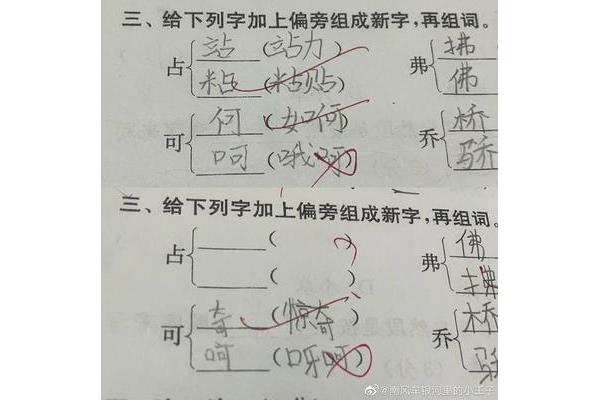 三、给下列字加上偏旁组成新字,再组词。
占 站 (站力)
粘 (粘贴)
弗 拂
佛
可 何 (如何)
呵 (哦呵)
乔 桥
骄
三、给下列字加上偏旁组成新字,再组词。
占 ( )
( )
弗 佛
拂
可 奇 (惊奇)
呵 (呀呵)
乔 桥
骄
@南风车银河里的小王子